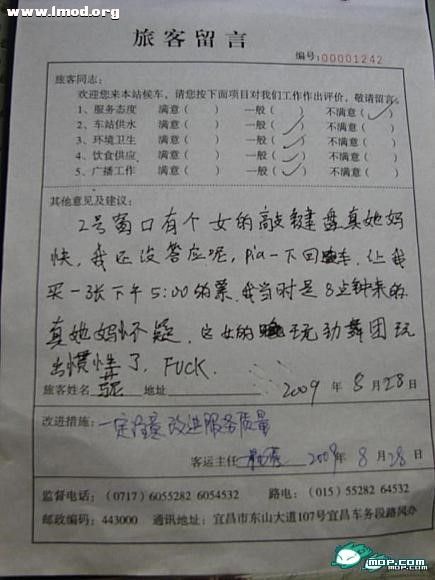 www.lmod.org
旅客留言
编号:00001242
旅客同志:
欢迎您来本站候车,请您按下面项目对我们工作作出评价,敬请留言。
1、服务态度 满意( ) 一般( ) 不满意(✓)
2、车站供水 满意( ) 一般(✓) 不满意( )
3、环境卫生 满意( ) 一般(✓) 不满意( )
4、饮食供应 满意( ) 一般(✓) 不满意( )
5、广播工作 满意( ) 一般(✓) 不满意( )
其他意见及建议:
2号窗口有个女的敲键盘真她妈
快,我还没答应呢,pia一下回车,让我
买一张下午5:00的票,我当时是8点钟来的
真她妈怀疑,这女的玩劲舞团玩
出惯性了,FUCK.
旅客姓名 地址 2009年8月28日
改进措施:一定注意改进服务质量
客运主任 2009年8月28日
监督电话:(0717)6055282 6054532 路电:(015)55282 64532
邮政编码:443000 通讯地址:宜昌市东山大道107号宜昌车务段路风办
mop.com